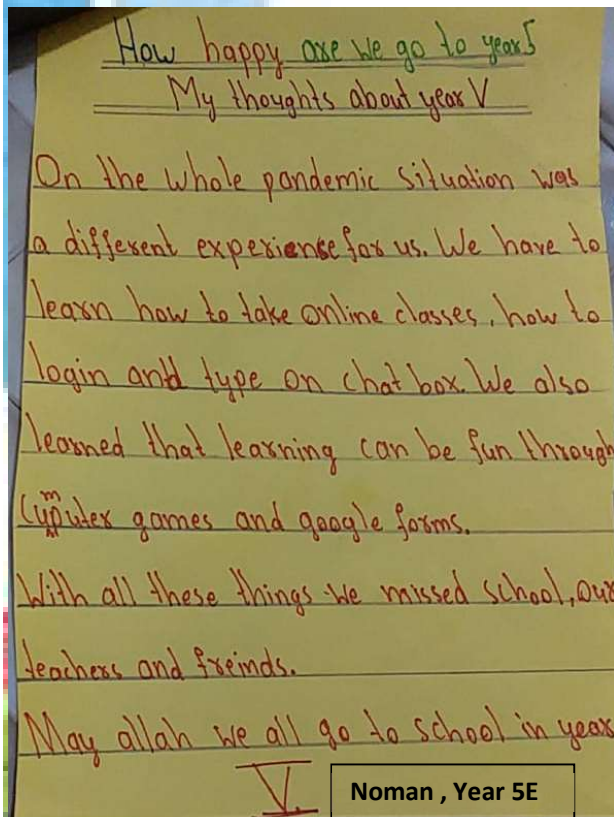 How happy are we go to year 5
My thoughts about year V
On the whole pandemic situation was
a different experiense for us. We have to
learn how to take online classes, how to
login and type on chat box. We also
learned that learning can be fun through
Cumputer games and google forms.
With all these things we missed school, our
teachers and freinds.
May allah we all go to school in year
V.
Noman , Year 5E